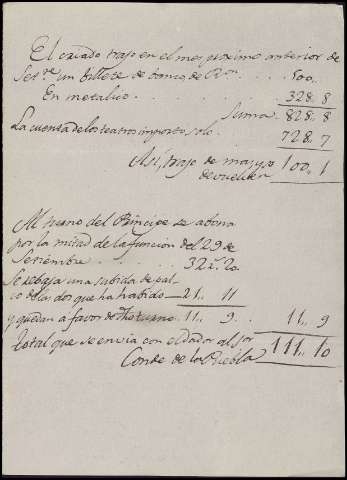 El criado trajo en el mes proximo anterior de
Set.re un billete de banco de R.on . . . 500.
En metalico . . . . . . 328,, 8
Suma 828,, 8
La cuenta de los teatros importó solo . . 728,, 7
Asi, trajo de mas y se devuelven 100,, 1
Al turno del Principe se abona
por la mitad de la funcion del 29 de
Setiembre . . . . . . 32,, 20
Se rebaja una subida de pal-
co de las dos que ha habido 21,, 11
y quedan a favor de 11,, 9 . 11,, 9
total que se envia con el dador al Sor 111,, 10
Conde de la Puebla